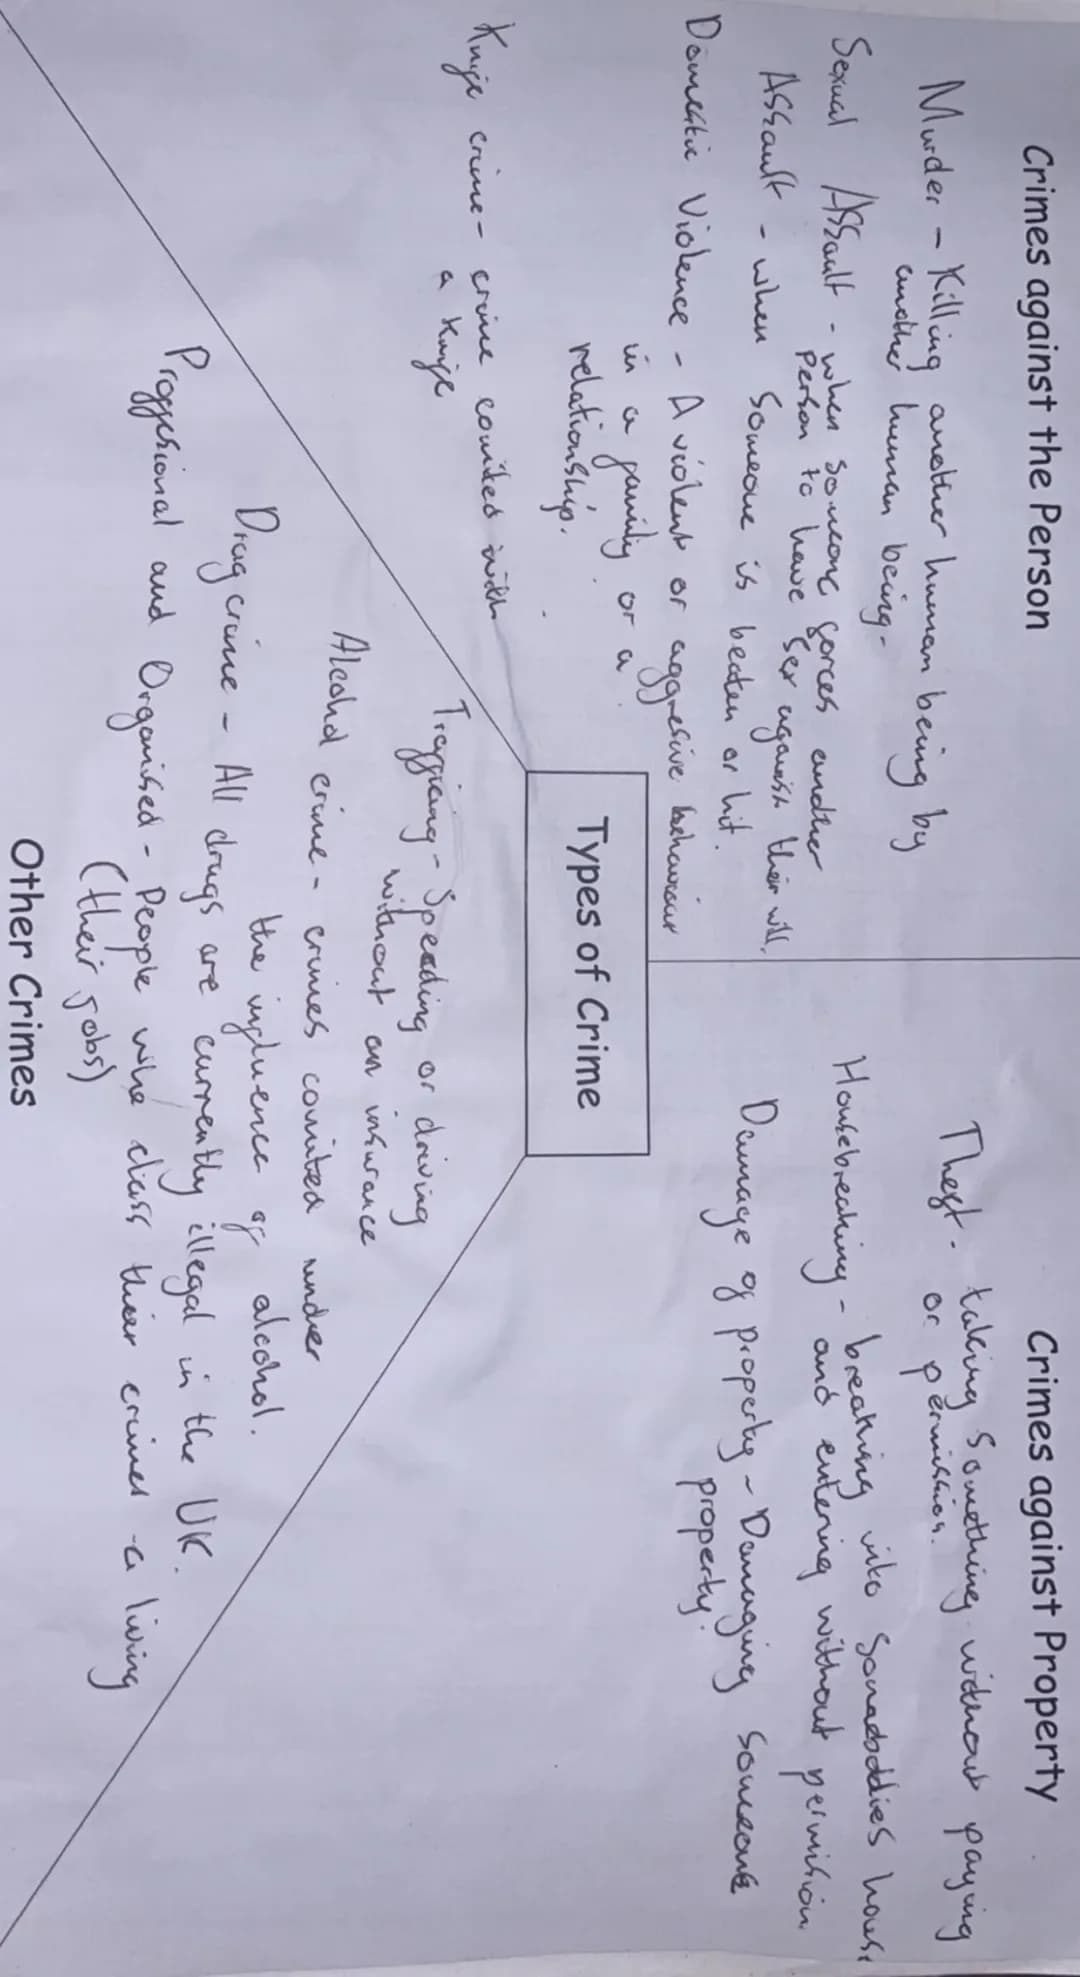 Crimes against the Person
Murder - Killing another human being by
another human being.
Sexual Assault - when someone forces another
person to have sex against their will.
Assault - when someone is beaten or hit.
Domestic Violence - A violent or aggresive behaviour
in a family or a
relationship.
Knife crime - crime comited with
a knife
Crimes against Property
Theft - taking something without paying
or permission.
Housebreaking - breaking into someboddies house
and entering without permision
Damage of property - Damaging someone
property.
Types of Crime
Traffic - Speeding or driving
without an insurance
Alcohol crime - crimes comited under
the influence of alcohol.
Drug crime - All drugs are currently illegal in the UK.
Proffesional and Organised - People who class their crimes - a living
(their jobs)
Other Crimes